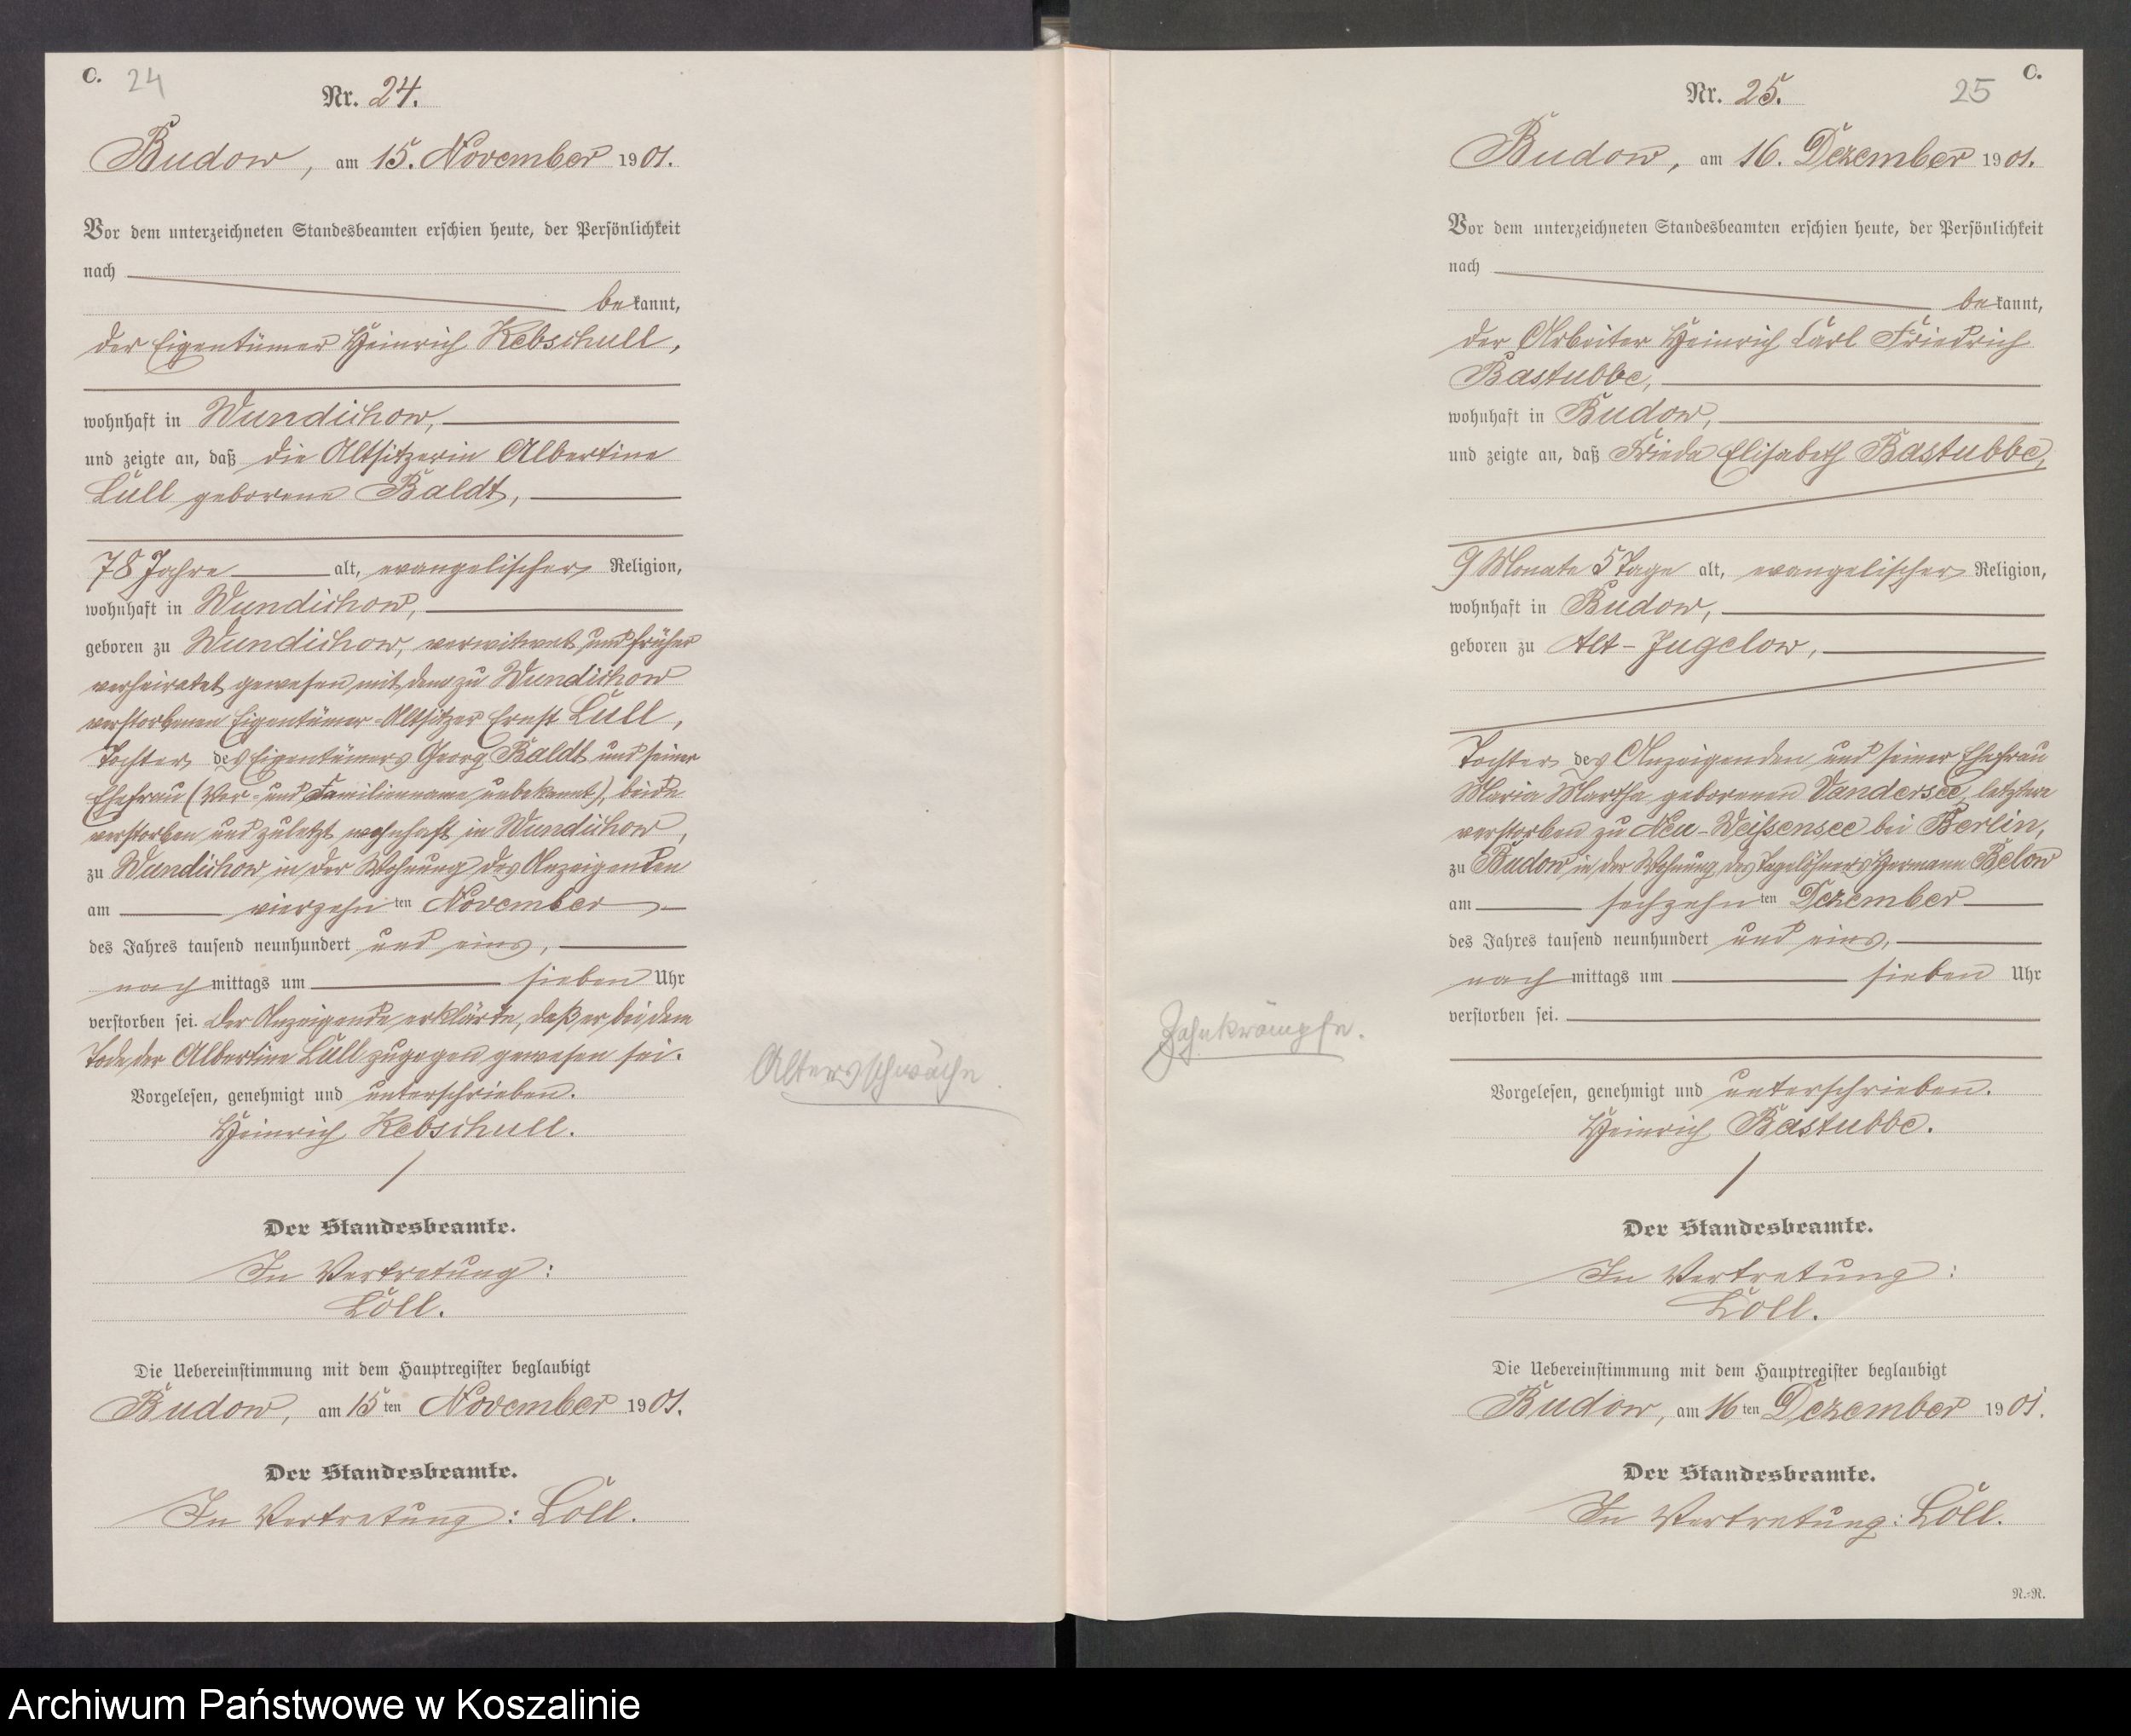 C. 24
Nr. 24.
Budow, am 15. November 1901.
Vor dem unterzeichneten Standesbeamten erschien heute, der Persönlichkeit
nach
bekannt,
der Eigentümer Heinrich Kebschull,
wohnhaft in Wundichow,
und zeigte an, daß die Altsitzerin Albertine
Lüll geborene Baldt,
78 Jahre alt, evangelischer Religion,
wohnhaft in Wundichow,
geboren zu Wundichow, verwitwet und früher
verheiratet gewesen mit dem zu Wundichow
verstorbenen Eigentümer-Altsitzer Ernst Lüll,
Tochter des Eigentümers Georg Baldt und seiner
Ehefrau (Vor- und Familienname unbekannt), beide
verstorben und zuletzt wohnhaft in Wundichow,
zu Wundichow in der Wohnung des Anzeigenden
am vierzehnten November
des Jahres tausend neunhundert und eins,
nachmittags um sieben Uhr
verstorben sei. Der Anzeigende erklärte, daß er bei dem
Tode der Albertine Lüll zugegen gewesen sei.
Vorgelesen, genehmigt und unterschrieben.
Heinrich Kebschull.
Der Standesbeamte.
In Vertretung:
Löll.
Die Uebereinstimmung mit dem Hauptregister beglaubigt
Budow, am 15ten November 1901.
Der Standesbeamte.
In Vertretung: Löll.
Altersschwäche
Nr. 25. 25 C.
Budow, am 16. Dezember 1901.
Vor dem unterzeichneten Standesbeamten erschien heute, der Persönlichkeit
nach
bekannt,
der Arbeiter Heinrich Carl Friedrich
Bastubbe,
wohnhaft in Budow,
und zeigte an, daß Frieda Elisabeth Bastubbe,
9 Monate 5 Tage alt, evangelischer Religion,
wohnhaft in Budow,
geboren zu Alt-Jugelow,
Tochter des Anzeigenden und seiner Ehefrau
Maria Martha geborenen Vandersee, letztere
verstorben zu Neu-Weißensee bei Berlin,
zu Budow in der Wohnung des Tagelöhners Hermann Below
am sechzehnten Dezember
des Jahres tausend neunhundert und eins,
nachmittags um sieben Uhr
verstorben sei.
Zahnkrämpfe.
Vorgelesen, genehmigt und unterschrieben.
Heinrich Bastubbe.
Der Standesbeamte.
In Vertretung:
Löll.
Die Uebereinstimmung mit dem Hauptregister beglaubigt
Budow, am 16ten Dezember 1901.
Der Standesbeamte.
In Vertretung: Löll.
N.-N.
Archiwum Państwowe w Koszalinie